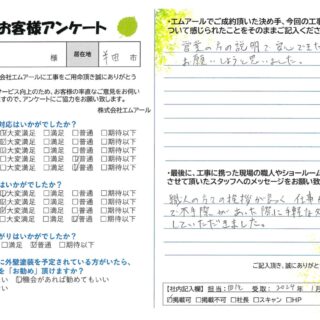 お客様アンケート
様 居在地 半田 市
会社エムアールに工事をご用命頂き誠にありがとう
サービス向上のため、お客様の率直なご意見をお伺い
すので、アンケートにご協力をお願い致します。
株式会社エムアール
対応はいかがでしたか?
大変満足 □満足 普通 □期待以下
大変満足 □満足 普通 □期待以下
□大変満足 □満足 普通 □期待以下
□大変満足 □満足 普通 □期待以下
はいかがでしたか?
□大変満足 □満足 普通 □期待以下
□大変満足 □満足 普通 □期待以下
□大変満足 □満足 普通 □期待以下
がりはいかがでしたか?
□満足 普通 □期待以下
に外壁塗装を予定されている方がいたら、
を「お勧め」頂けますか?
い 機会があれば勧めてもいい
・エムアールでご成約頂いた決め手、今回の工事
ついて感じられたことをそのままご記入ください
営業の方の説明で安心できた
お願いしようと思いました。
・最後に、工事に携った現場の職人やショールーム
させて頂いたスタッフへのメッセージをお願い致
職人の方々の挨拶が良く 仕事
で不手際があった際に手軽な対
していただきました。
ご記入頂き、誠にあり
【社内記入欄】 担当: 受取 2024 年 1 月
掲載可 □掲載不可 □社長 □スキャン □HP